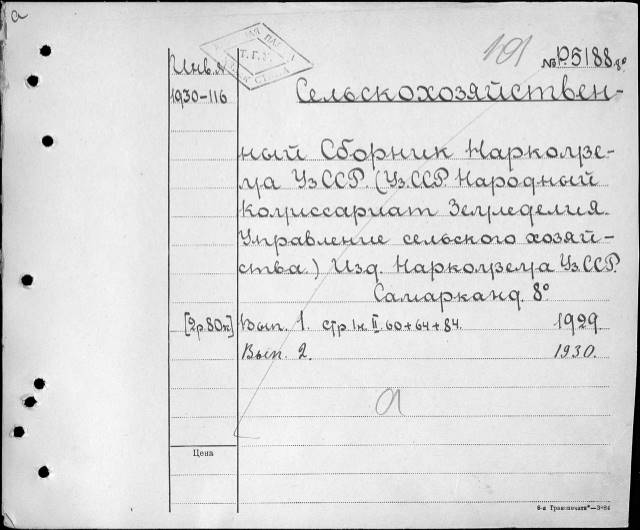 а
191
№ Р.5188 8°
Инв. №
Т.Г.У.
1930-116
Сельскохозяйствен-
ный Сборник Наркомзе-
ма УзССР. (УзССР. Народный
Комиссариат Земледелия.
Управление сельского хозяй-
ства.) Изд. Наркомзема УзССР.
Самарканд. 8°
[2р.80к] Вып. 1. стр. 1н. II. 60+64+84. 1929.
Вып. 2. 1930.
а
Цена
6-я Транспечати"—3484